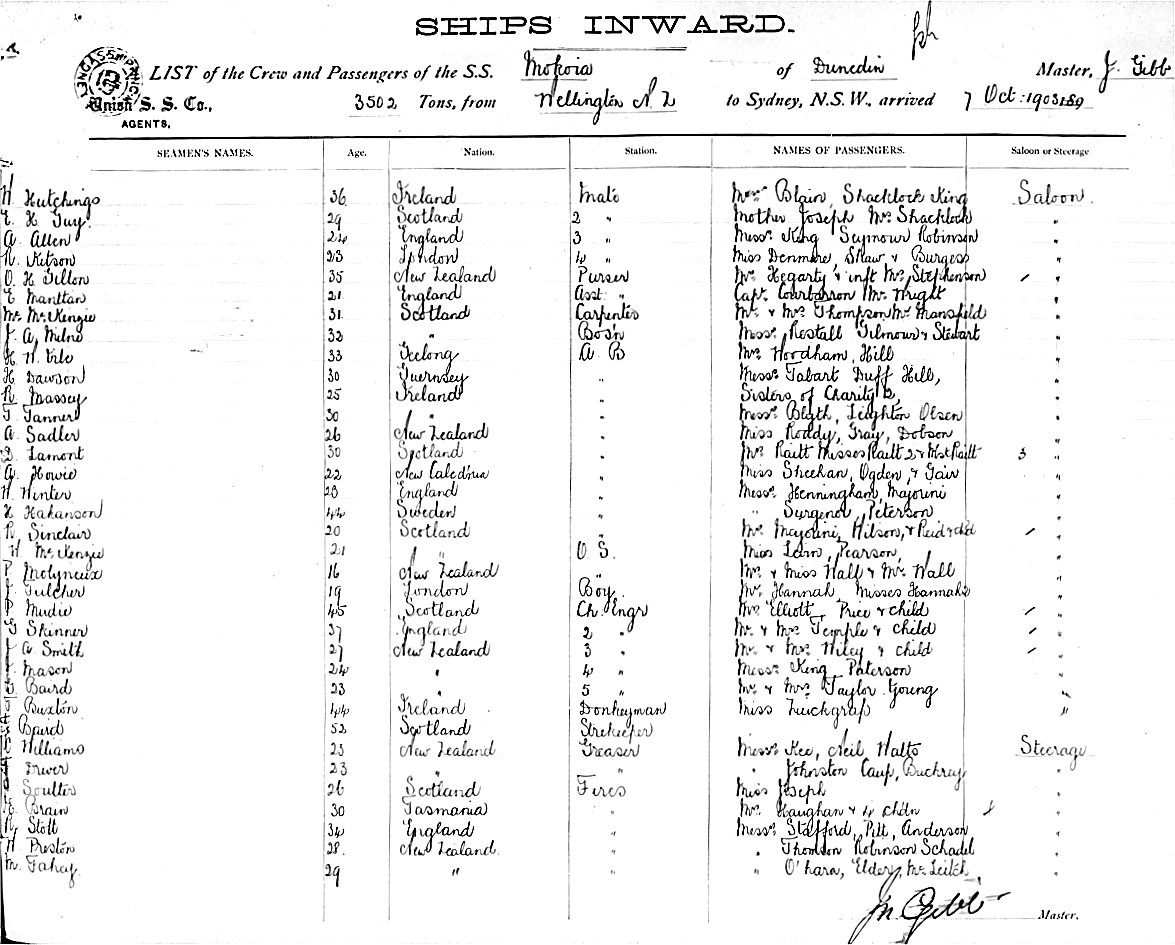 SHIPS INWARD.
LIST of the Crew and Passengers of the S.S. Mokoia of Dunedin Master, J. Gibb
Union S. S. Co., 3502 Tons, from Wellington N. Z to Sydney, N.S.W., arrived 7 Oct: 1903
AGENTS,
SEAMEN'S NAMES. Age. Nation. Station. NAMES OF PASSENGERS. Saloon or Steerage
H. Hutchings 36 Ireland Mate Messrs Blain, Shacklock King Saloon.
E. H Guy. 29 Scotland 2 " Mother Joseph Mrs Shacklock "
A. Allen 24 England 3 " Messrs King Seymour Robinson "
R. Kitson 23 London 4 " Miss Denmere, Shaw & Burgess "
O. H Gillon 35 New Zealand Purser Mrs Hegarty & inft Mrs Stephenson / "
E Manttan 21 England Asst " Capt. Mr Wright "
Mc McKenzie 31. Scotland Carpenter Mr & Mrs Thompson Mr Mansfield "
J. A. Milne 32 " Bosn Messrs Restall Gilmour & Stewart "
H. W. Vile 33 Geelong A. B Mrs Woodham, Hill "
H Dawson 30 Guernsey " Messrs Tabart Duff Hill, "
R. Massey 25 Ireland " Sisters of Charity 2, "
T Tanner 30 " " Messrs Blyth, Leighton Olsen "
A. Sadler 26 New Zealand " Miss Roddy, Gray, Dobson "
D. Lamont 30 Scotland " Mrs Raitt Misses Raitt 2 & Mst Raitt 3 "
A. Howie 22 New Caledonia " Miss Sheehan, Ogden, & Gair "
W. Winter 28 England " Messrs Henningham, Majorini "
H Hakanson 44 Sweden " " Surgenor, Peterson "
R. Sinclair 20 Scotland " Mrs Majorini, Hilson, & Reid & chd / "
H. McKenzie 21 " O. S. Miss Lern, Pearson, "
P. Molyneux 16 New Zealand " Mr & Miss Wall & Mrs Wall "
J. Tulcher 19 London Boy. Mrs Hannah, Misses Hannah 2 "
P Mudie 45 Scotland Ch. Engr Mrs Elliott, Price & child / "
G Skinner 37 England 2 " Mr & Mrs Temple & child / "
J A Smith 27 New Zealand 3 " Mr & Mrs Wiley & child / "
J. Mason 24 " 4 " Messrs King, Paterson "
Baird 23 " 5 " Mr & Mrs Taylor Young "
Buxton 44 Ireland Donkeyman Miss "
Baird 52 Scotland Strekeeper
Williams 23 New Zealand Greaser Messrs Kee, Neil Walts Steerage
Driver 23 " " " Johnston Camp, "
Soulter 26 Scotland Fires Miss Joseph "
E. Brain 30 Tasmania " Mrs Haughan & 4 chdn "
R. Stott 34 England " Messrs Stafford, Pitt, Anderson "
W. Preston 28. New Zealand. " " Thomson Robinson Schadel "
M. Fahey. 29 " " " O'hara, Elder, McLeitch, "
Gibb Master.